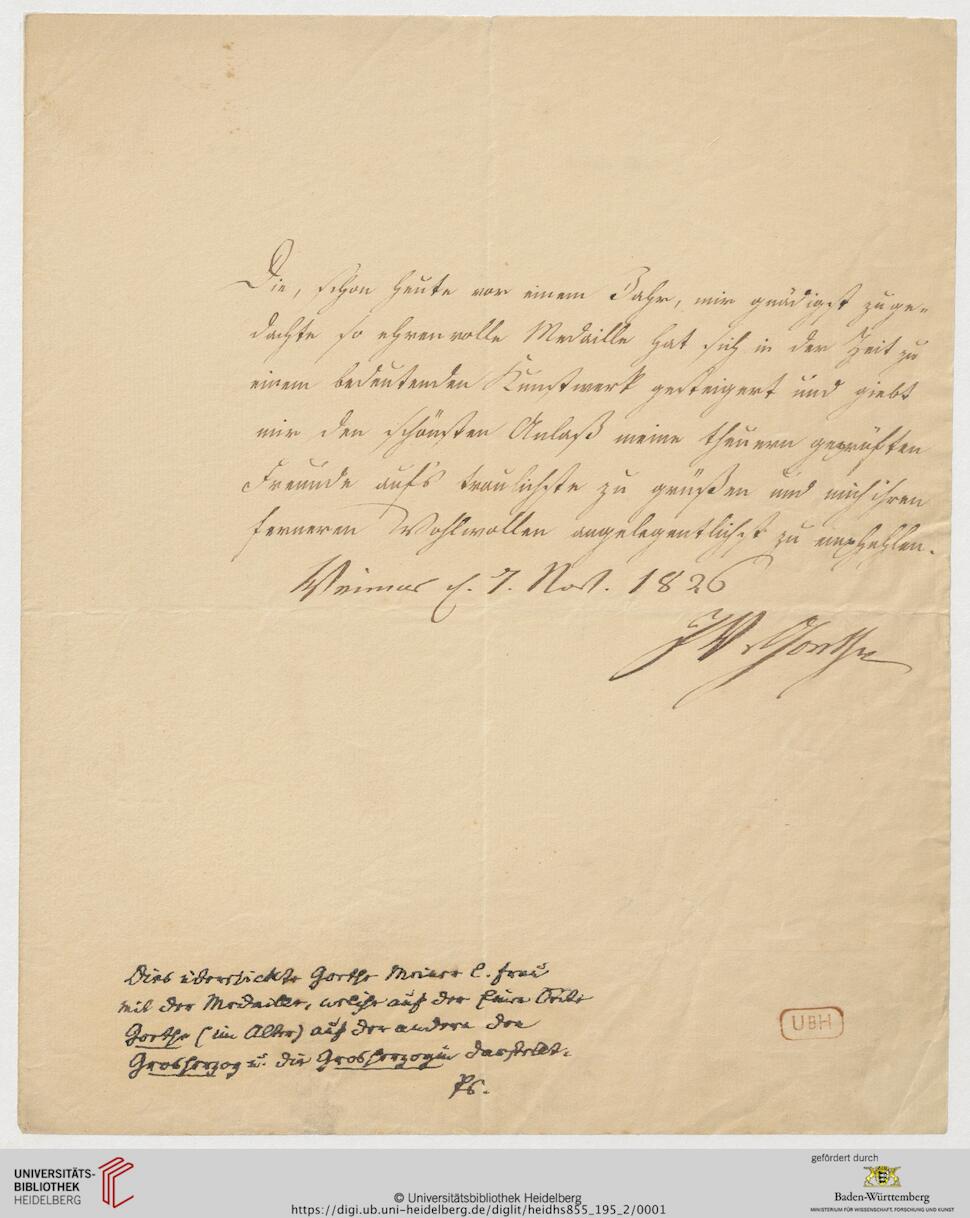 Die, schon heute vor einem Jahr, mir gnädigst zuge-
dachte so ehrenvolle Medaille hat sich in der Zeit zu
einem bedeutenden Kunstwerk gesteigert und giebt
mir den schönsten Anlaß meine theuern geprüften
Freunde auf's traulichste zu grüßen und mich ihren
ferneren Wohlwollen angelegentlichst zu empfehlen.
Weimar d. 7. Nov. 1826
JWvGoethe
Dies überschickte Goethe Meiner l. Frau
mit der Medaille, welche auf der Einen Seite
Goethe (im Alter) auf der andern den
Grosherzog u. die Grosherzogin darstellt.
Ps.
UBH
UNIVERSITÄTS-
BIBLIOTHEK
HEIDELBERG
© Universitätsbibliothek Heidelberg
https://digi.ub.uni-heidelberg.de/diglit/heidhs855_195_2/0001
gefördert durch
Baden-Württemberg
MINISTERIUM FÜR WISSENSCHAFT, FORSCHUNG UND KUNST